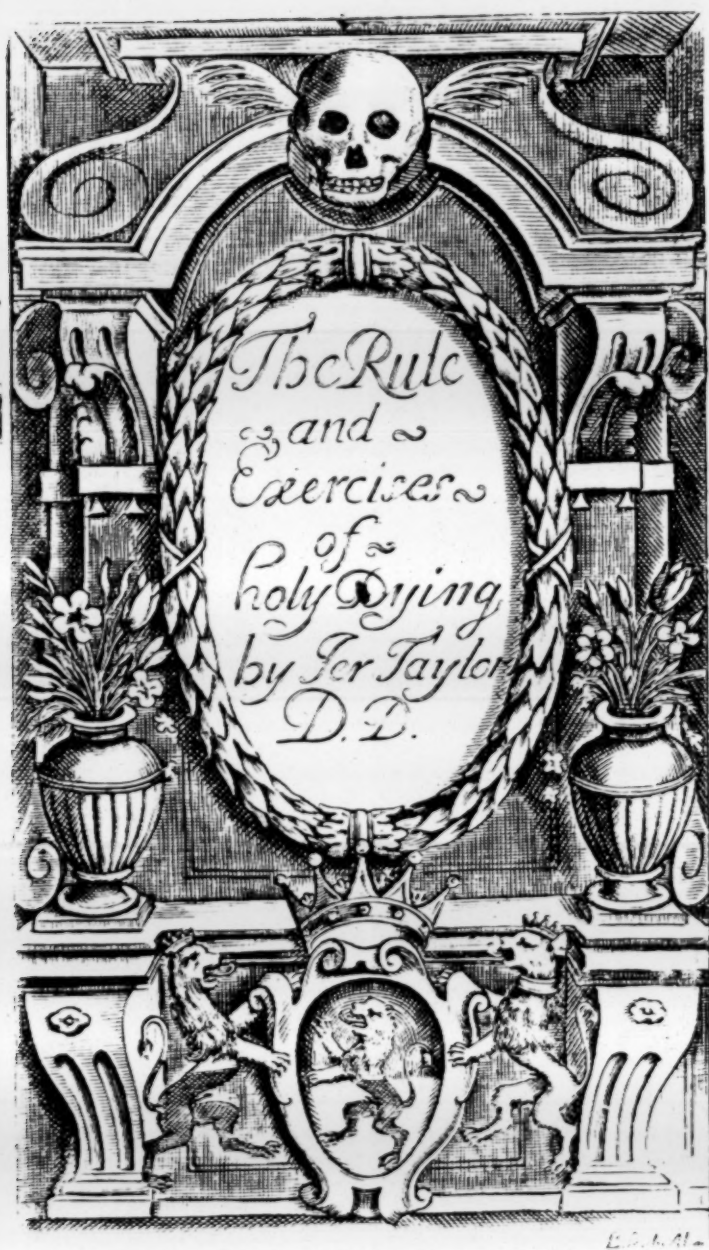 The Rule
and
Exercises
of
holy Dying
by Jer Taylor
D. D.